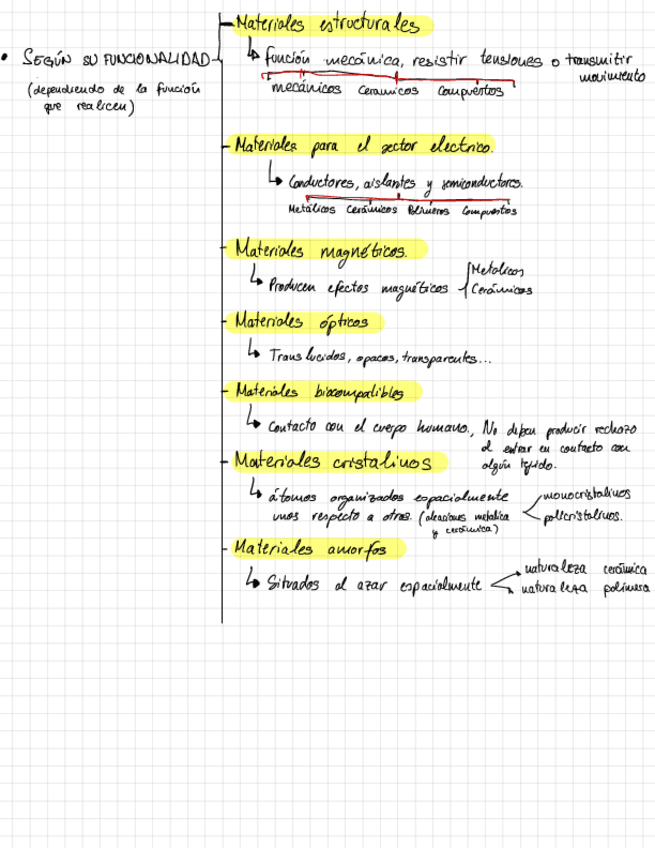 Materiales estructurales
• SEGÚN SU FUNCIONALIDAD
(dependiendo de la función
que realicen)
función mecánica, resistir tensiones o transmitir
movimiento
mecánicos Ceramicos Compuestos
Materiales para el sector electrico.
Conductores, aislantes y semiconductores.
Metálicos Cerámicos Polímeros Compuestos
Materiales magnéticos.
Producen efectos magnéticos
Metalicos
Cerámicos
Materiales ópticos
Translucidos, opacos, transparentes...
Materiales biocompatibles
Contacto con el cuerpo humano, No deben producir rechazo
al entrar en contacto con
algún tejido.
Materiales cristalinos
átomos organizados espacialmente
unos respecto a otros (aleaciones metalica
y cerámica)
monocristalinos
policristalinos.
Materiales amorfos
Situados al azar espacialmente
naturaleza cerámica
naturaleza polimera